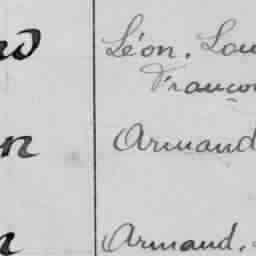 Léon, Lou
Françoi
Armand
Armand,